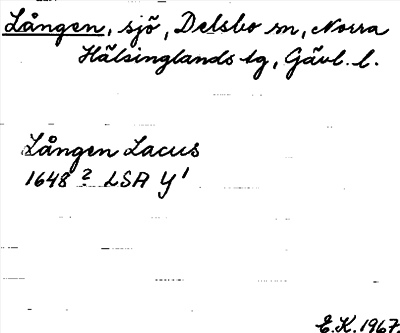 Lången, sjö, Delsbo sn, Norra
Hälsinglands tg, Gävl. l.
Lången Lacus
1648 ? LSA Y¹
E.K. 1967.